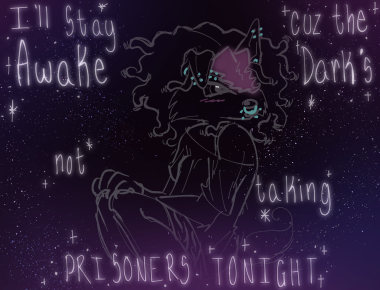 I'll Stay
Awake
cuz the
Dark's
not
taking
PRISONERS TONIGHT